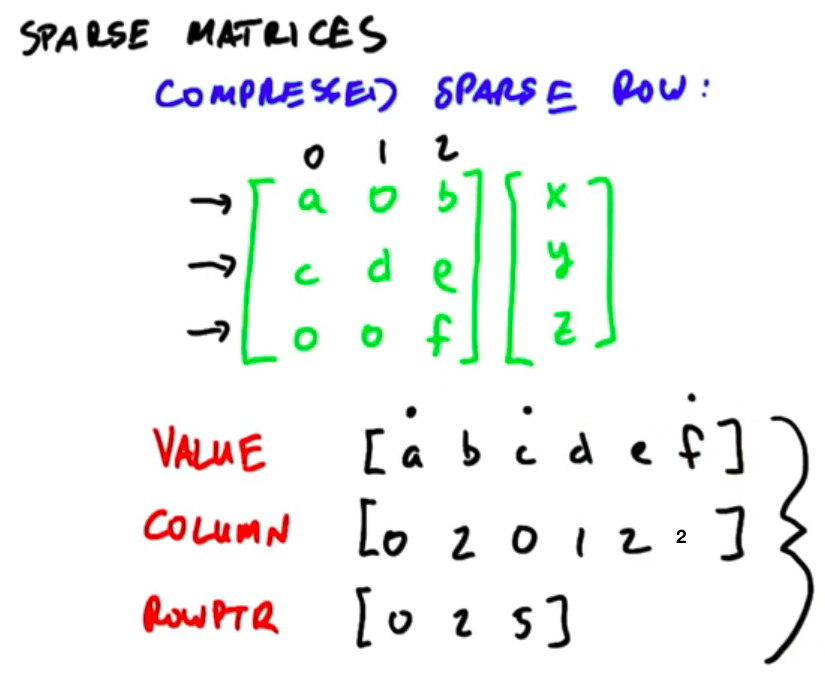 SPARSE MATRICES
COMPRESSED SPARSE ROW:
0 1 2
→ [ a 0 b ] [ x ]
→ [ c d e ] [ y ]
→ [ 0 0 f ] [ z ]
VALUE [ a b c d e f ]
COLUMN [ 0 2 0 1 2 2 ]
ROWPTR [ 0 2 5 ]